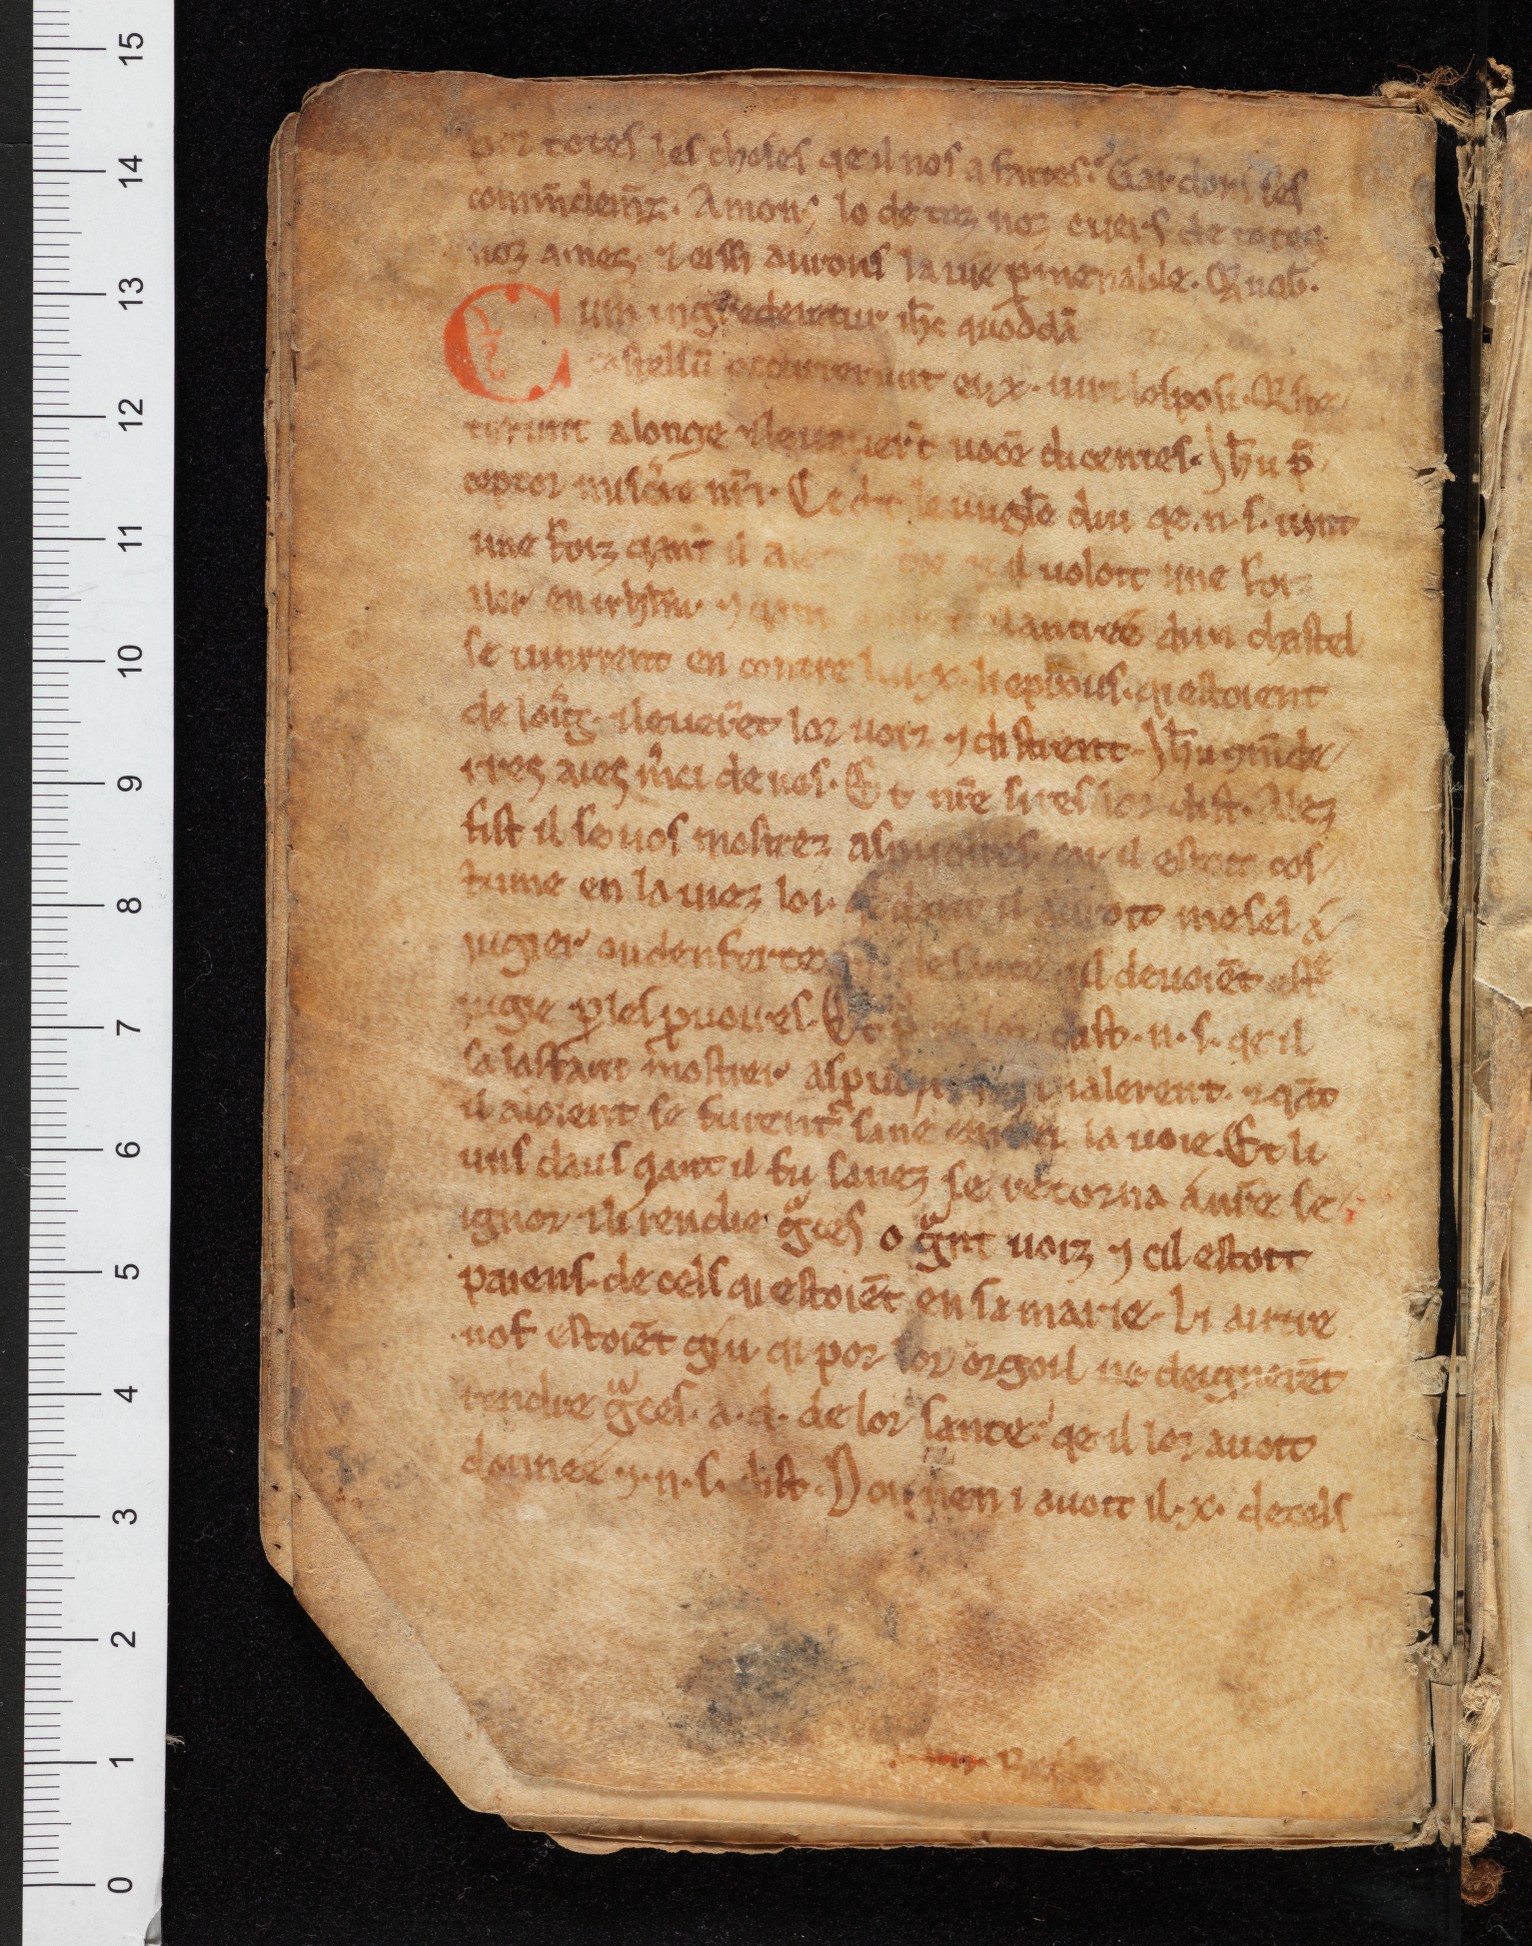 por totes les choses qe il nos a faites. Gardons ses
com̄ndem̄z. Amons lo de toz noz cuers de totes
noz ames. ⁊ eissi aurons la uie p̄menable. Q̄ nob̄.
Cum ingrederetur ih̄c quoddā
castellū occurrerunt ei .x. uiri leprosi. Q̇ ste-
terunt a longe ⁊ leuauer̄t uocē dicentes. Ih̄u p̄-
ceptor miserere nr̄i. Ce dit le uugl̄e dui qe .n. s. uint
une foiz qant il qe il uoloit une foiz
aler en irhl̄m. ⁊ qant lantree dun chastel
se uinrrent en contre lui .x. lieprous. qi estoient
de loing. ⁊ leuerēt lor uoiz ⁊ distrent. Ih̄u ꝯm̄de-
rres aies m̄ci de nos. Et nr̄e sires lor dist. Alez
fist il se uos mostrez as puoires. car il estoit cos-
tume en la uiez loi. qe qant il auoit mesel a
iugier ou denferte de sante qil deuoiēt estre
iugie p̱ les p̱uoires. Et por ce lor dist .n. s. qe il
salassant mostrer as p̱uoires ⁊ il i alerent. ⁊ qāt
il aloient se furent sane enmi la uoie. Et li
uns daus qant il fu sanez se retorna a nr̄e se-
ignor ⁊ li rendie gᵃces o gᵃnt uoiz ⁊ cil estoit
paiens. de cels qi estoiēt en samarie. Li autre
nof estoiēt giu qi por lor orgoil ne deignerēt
rendre gᵃces .a. d. de lor sante. qe il lor auoit
donnee ⁊ .n. s. dist. Don nen i auoit il .x. de cels